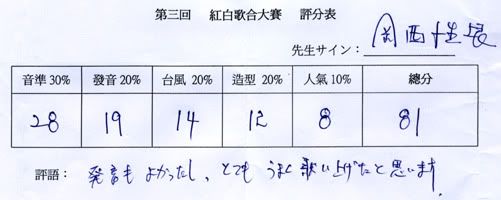 第三回 紅白歌合大賽 評分表
先生サイン：
音準30% 發音20% 台風 20% 造型 20% 人氣10% 總分
28 19 14 12 8 81
評語： 発音もよかったし、とても うまく歌い上げたと思います.